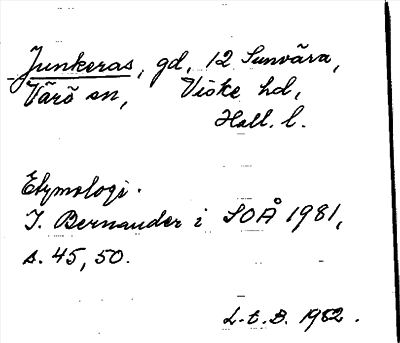 Junkeras, gd, 12 Sunvära,
Värö sn, Viske hd,
Hall. l.
Etymologi.
I. Bernander i SOÅ 1981,
s. 45, 50.
L.t.B. 1982.